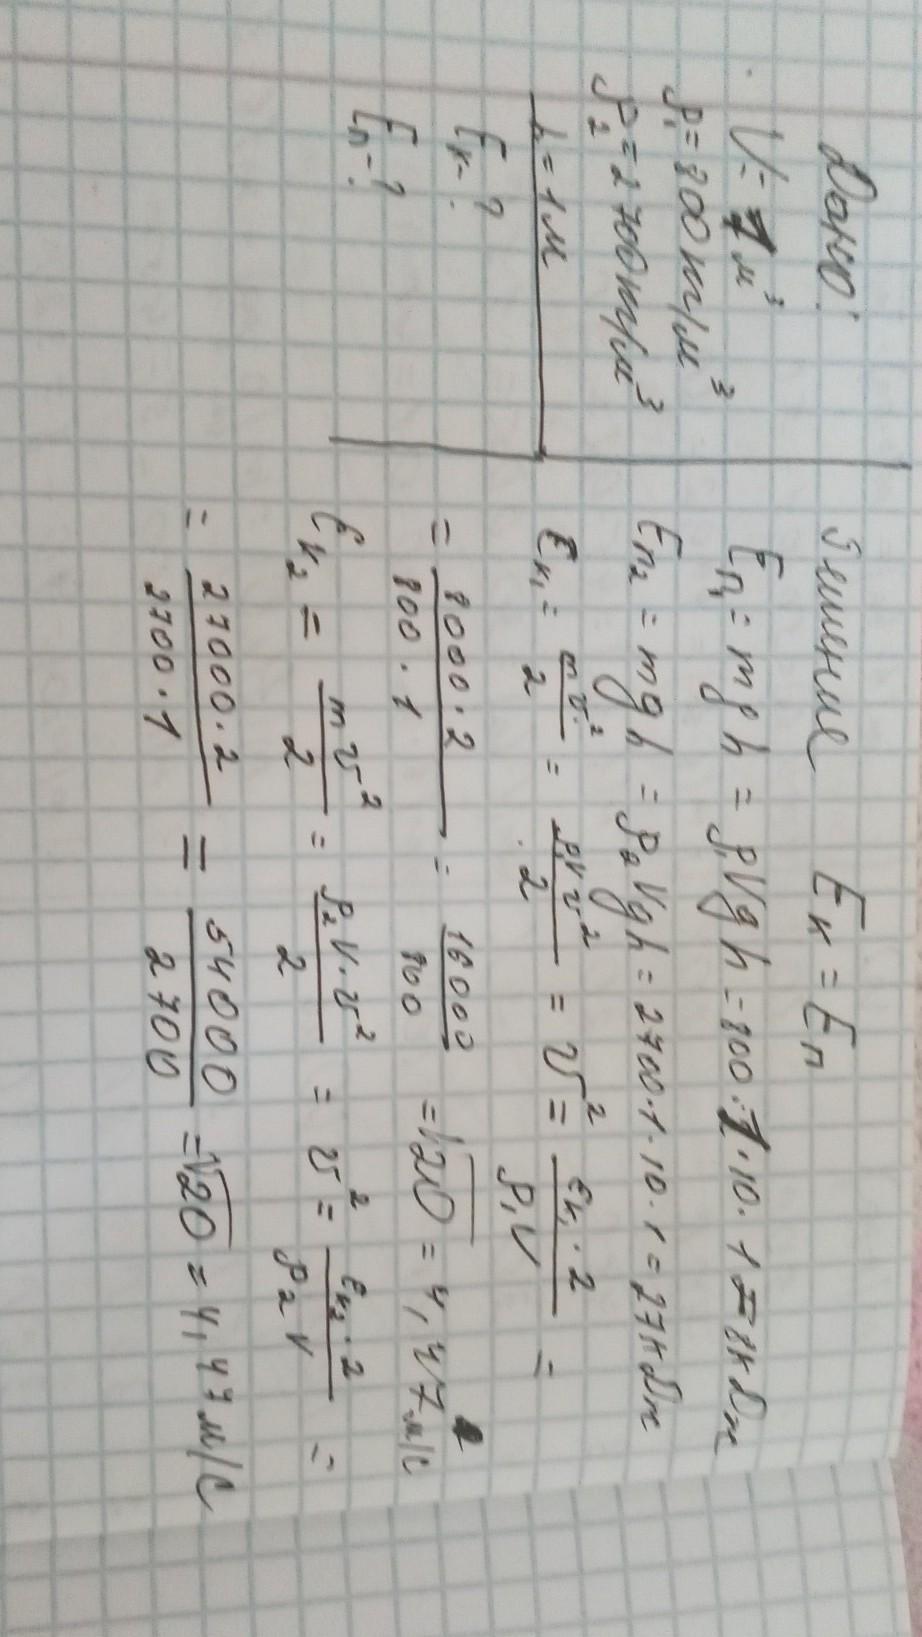 Дано:
V = 1 м³
ρ₁ = 800 кг/м³
ρ₂ = 2700 кг/м³
h = 1 м
Eк - ?
Eп - ?
Решение Eк = Eп
Eп₁ = mgh = ρ₁Vgh = 800 · 1 · 10 · 1 = 8кДж
Eп₂ = mgh = ρ₂Vgh = 2700 · 1 · 10 · 1 = 27кДж
Eк₁ = mv²/2 = ρ₁Vv²/2 = v² = Eк₁ · 2/ρ₁V =
= 8000 · 2/800 · 1 = 16000/800 = √20 = 4,47 м/с
Eк₂ = mv²/2 = ρ₂V · v²/2 = v² = Eк₂ · 2/ρ₂V =
= 27000 · 2/2700 · 1 = 54000/2700 = √20 = 4,47 м/с